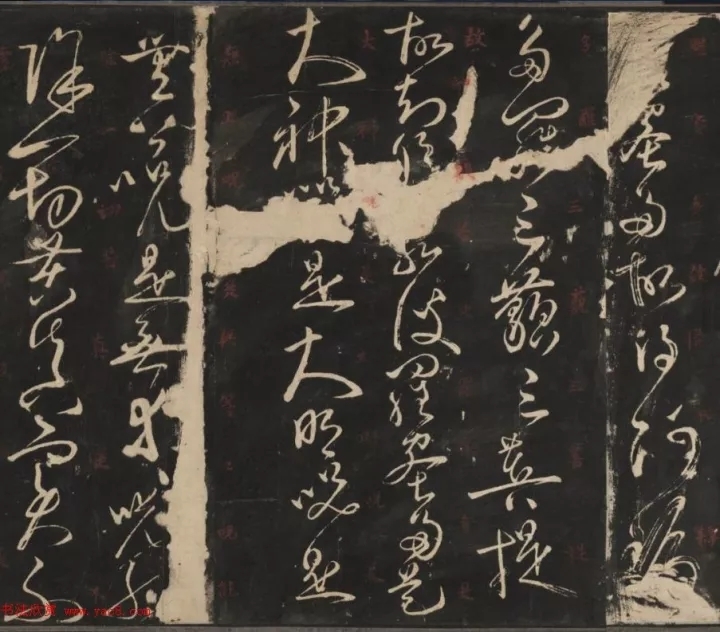 蜜多故得阿耨
多羅三藐三菩提
故知般若波羅蜜多是
大神咒是大明咒是
無上咒是無等等咒能
除一切苦真實不
书法欣赏 www.yac8.com